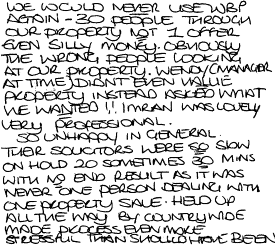 WE WOULD NEVER USE WBP
AGAIN - 30 PEOPLE THROUGH
OUR PROPERTY NOT 1 OFFER
EVEN SILLY MONEY. OBVIOUSLY
THE WRONG PEOPLE LOOKING
AT OUR PROPERTY. WENDY (MANAGER
AT TIME) DIDN'T EVEN VALUE
PROPERTY INSTEAD ASKED WHAT
WE WANTED!! IMRAN WAS LOVELY
VERY PROFESSIONAL.
SO UNHAPPY IN GENERAL.
THEIR SOLICITORS WERE SO SLOW
ON HOLD 20 SOMETIMES 30 MINS
WITH NO END RESULT AS IT WAS
NEVER ONE PERSON DEALING WITH
ONE PROPERTY SALE. HELD UP
ALL THE WAY BY COUNTRYWIDE
MADE PROCESS EVEN MORE
STRESSFUL THAN SHOULD HAVE BEEN